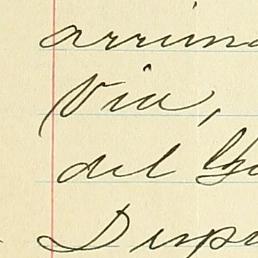 arrima
Via,
del Go
Dispu